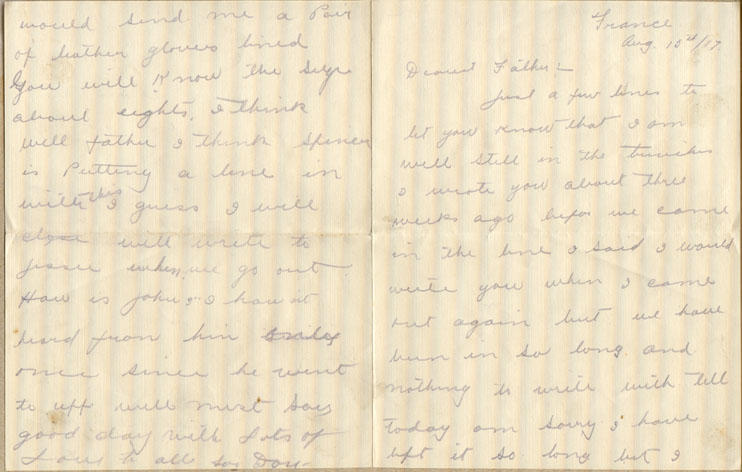 France
Aug. 10th/17
Dearest Father:-
Just a few lines to
let you know that I am
well still in the trenches
I wrote you about three
weeks ago before we came
in the line I said I would
write you when I came
out again but we have
been in so long and
nothing to write with till
today am sorry I have
left it so long but I
would send me a Pair
of leather gloves lined
You will know the size
about eights. I think
well father I think Spencer
is Putting a line in
with this I guess I will
close will write to
Jessie when we go out
How is John? I havnt
heard from him only
once since he went
to will must say
good day with Lots of
Love to all